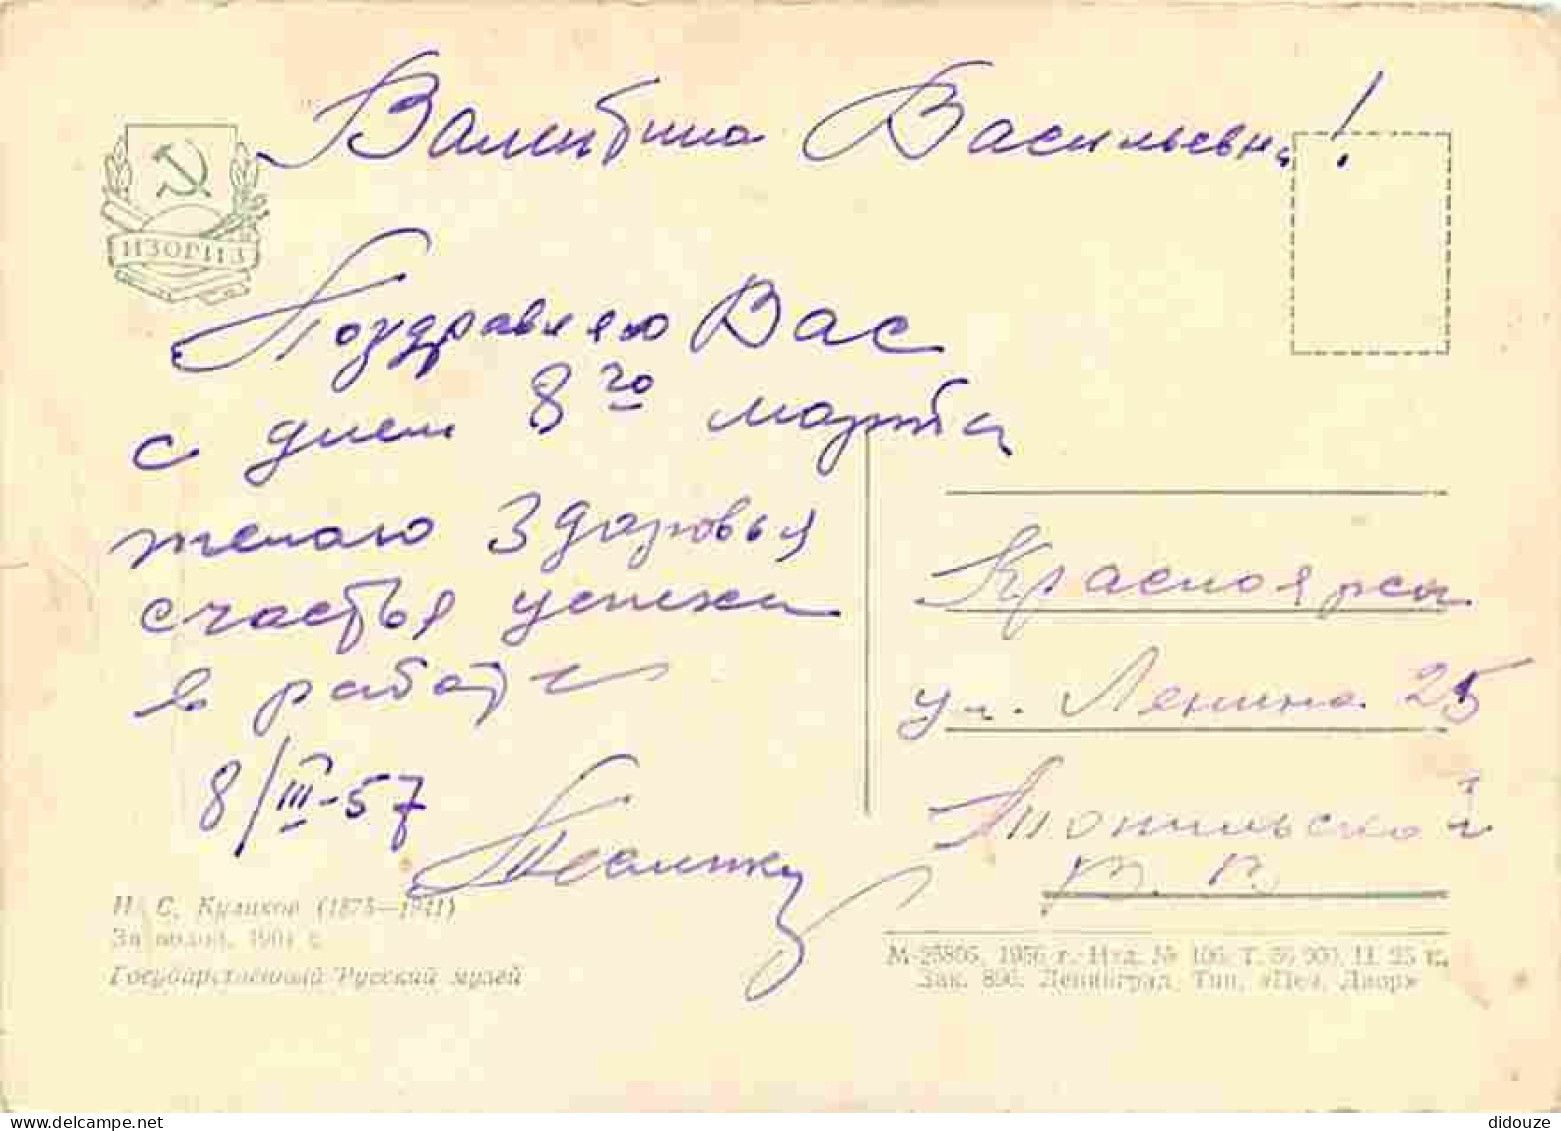 Валентина Васильевна!
ИЗОГИЗ
Поздравляю Вас
с днем 8го марта
желаю здоровья
счастья успеха
в работе
8/III-57
Красноярск
ул. Ленина 25
В. В.
С. Куликов (1875—1941)
Государственный Русский музей
1956 г. Изд. № 106. Т. 50 000. Ц. 25 к.
Зак. 896. Ленинград, Тип. «Печ. Двор»
didouze
www.delcampe.net